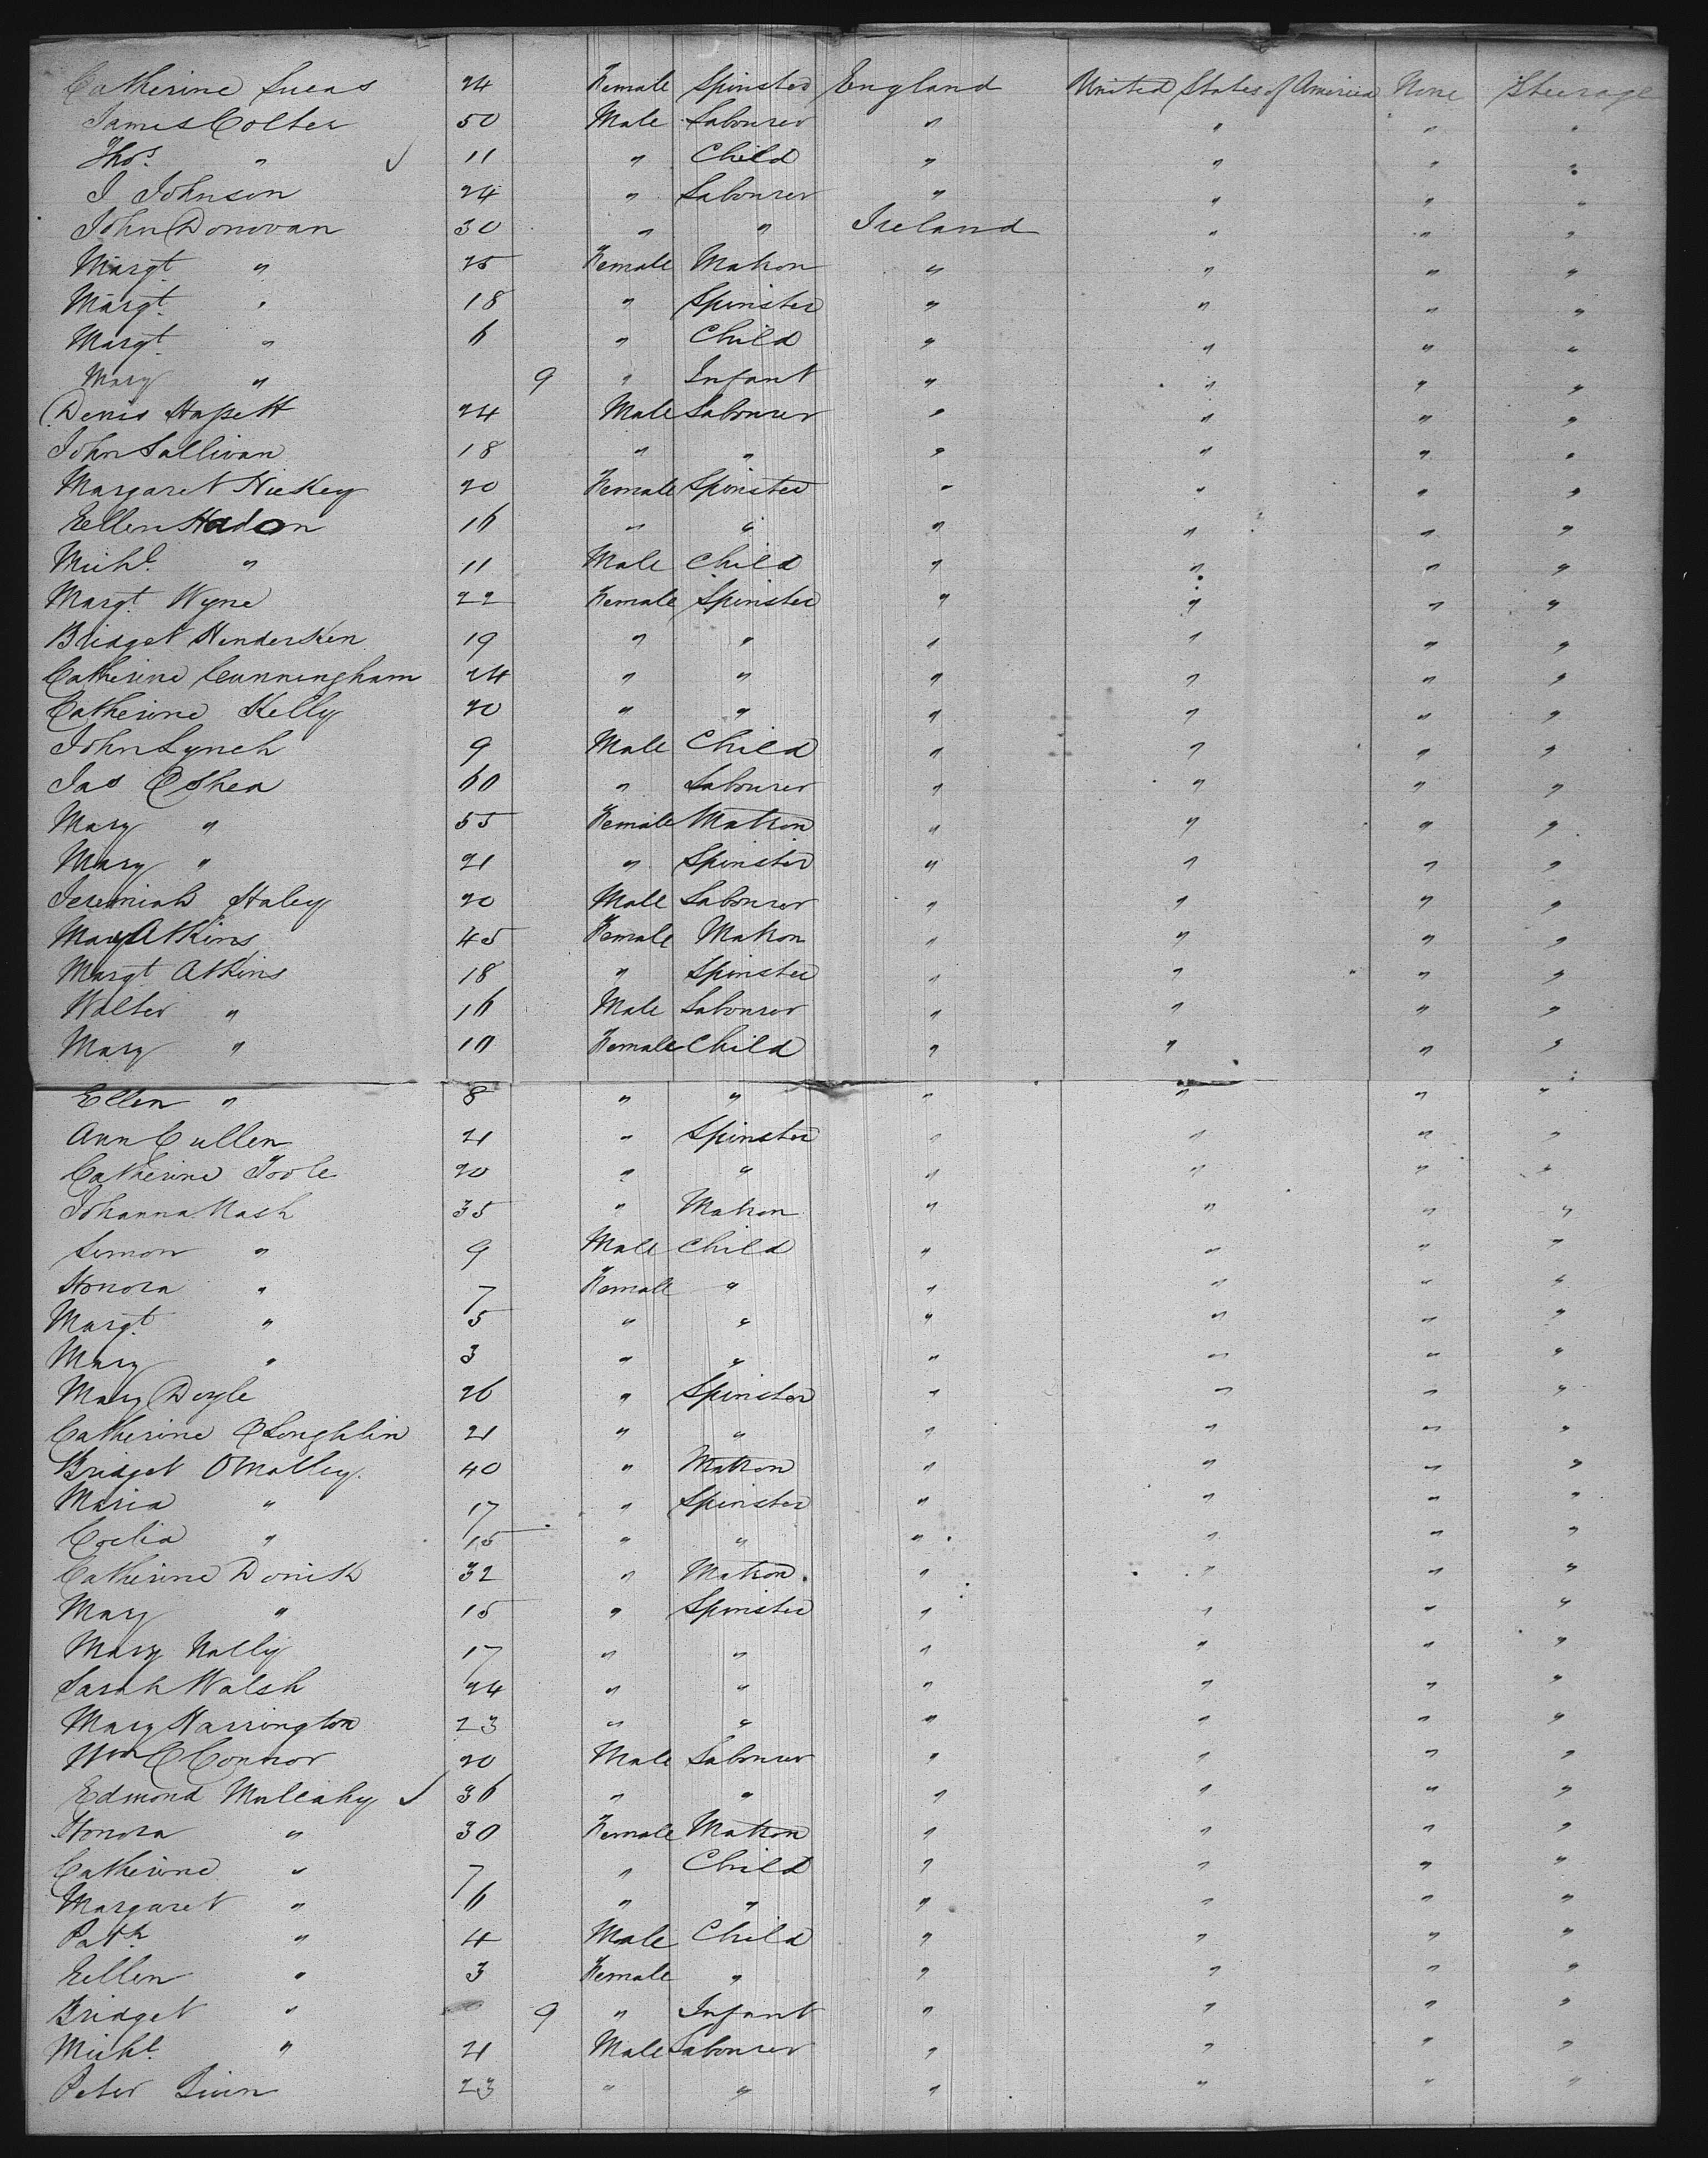 Catherine Lucas 24 Female Spinster England United States of America None Steerage
James Colter 50 Male Labourer " " " "
Thos. " 11 " Child " " " "
J Johnson 24 " Labourer " " " "
John Donovan 30 " " Ireland " " "
Margt " 25 Female Matron " " " "
Margt. " 18 " Spinster " " " "
Margt. " 6 " Child " " " "
Mary " 9 " Infant " " " "
Denis 24 Male Labourer " " " "
John Sullivan 18 " " " " " "
Margaret Hickey 20 Female Spinster " " " "
Eellen Hadon 16 " " " " " "
Michl. " 11 Male Child " " " "
Margt. Wyne 22 Female Spinster " " " "
Bridget Henderken 19 " " " " " "
Catherine Cunningham 24 " " " " " "
Catherine Kelly 20 " " " " " "
John Lynch 9 Male Child " " " "
Jas OShea 60 " Labourer " " " "
Mary " 55 Female Matron " " " "
Mary " 21 " Spinster " " " "
Jeremiah Haley 20 Male Labourer " " " "
Mary Atkins 45 Female Matron " " " "
Margt. Atkins 18 " Spinster " " " "
Walter " 16 Male Labourer " " " "
Mary " 10 Female Child " " " "
Ellen " 8 " " " " " "
Ann Cullen 21 " Spinster " " " "
Catherine Toole 20 " " " " " "
Johanna Nash 35 " Matron " " " "
Simon " 9 Male Child " " " "
Honora " 7 Female " " " " "
Margt. " 5 " " " " " "
Mary " 3 " " " " " "
Mary Doyle 26 " Spinster " " " "
Catherine OLoughlin 21 " " " " " "
Bridget OMalley. 40 " Matron " " " "
Maria " 17 " Spinster " " " "
Coelia " 15 " " " " " "
Catherine 32 " Matron " " " "
Mary " 15 " Spinster " " " "
Mary Nally 17 " " " " " "
Sarah Walsh 24 " " " " " "
Mary Harrington 23 " " " " " "
Wm OConnor 20 Male Labourer " " " "
Edmond Mulcahy 36 " " " " " "
Honora " 30 Female Matron " " " "
Catherine " 7 " Child " " " "
Margaret " 6 " " " " " "
Patk " 4 Male Child " " " "
Eellen " 3 Female " " " " "
Bridget " 9 " Infant " " " "
Michl. " 21 Male Labourer " " " "
Peter 23 " " " " " "